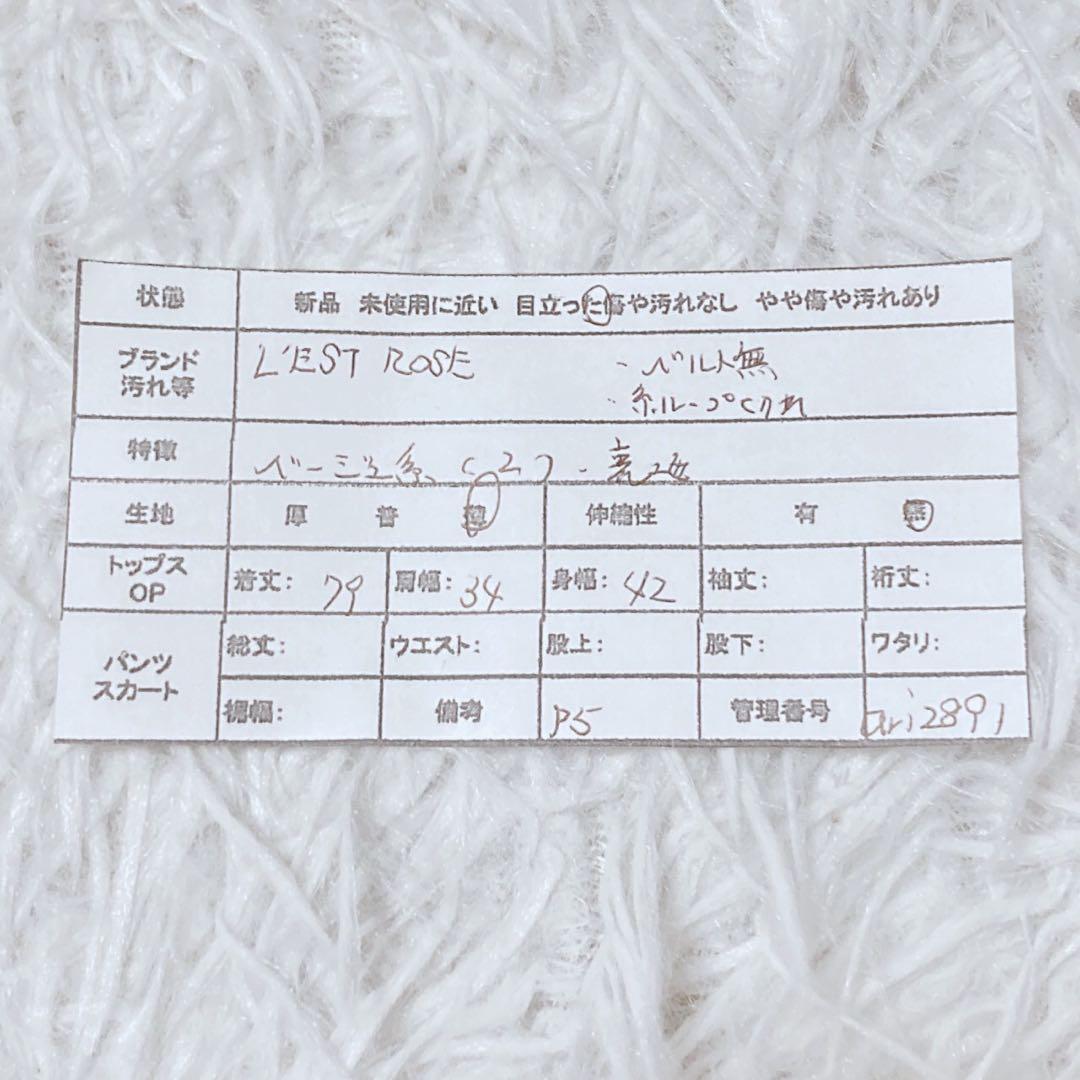 状態 新品 未使用に近い 目立った傷や汚れなし やや傷や汚れあり
ブランド 汚れ等 L'EST ROSE ・ベルト無
・糸ループくりれ
特徴 ベージュ系 (2)
生地 厚 普 薄 伸縮性 有 無
トップス OP 着丈: 79 肩幅: 34 身幅: 42 袖丈: 裄丈:
パンツ スカート 総丈: ウエスト: 股上: 股下: ワタリ:
裾幅: 備考 P5 管理番号 ari2891